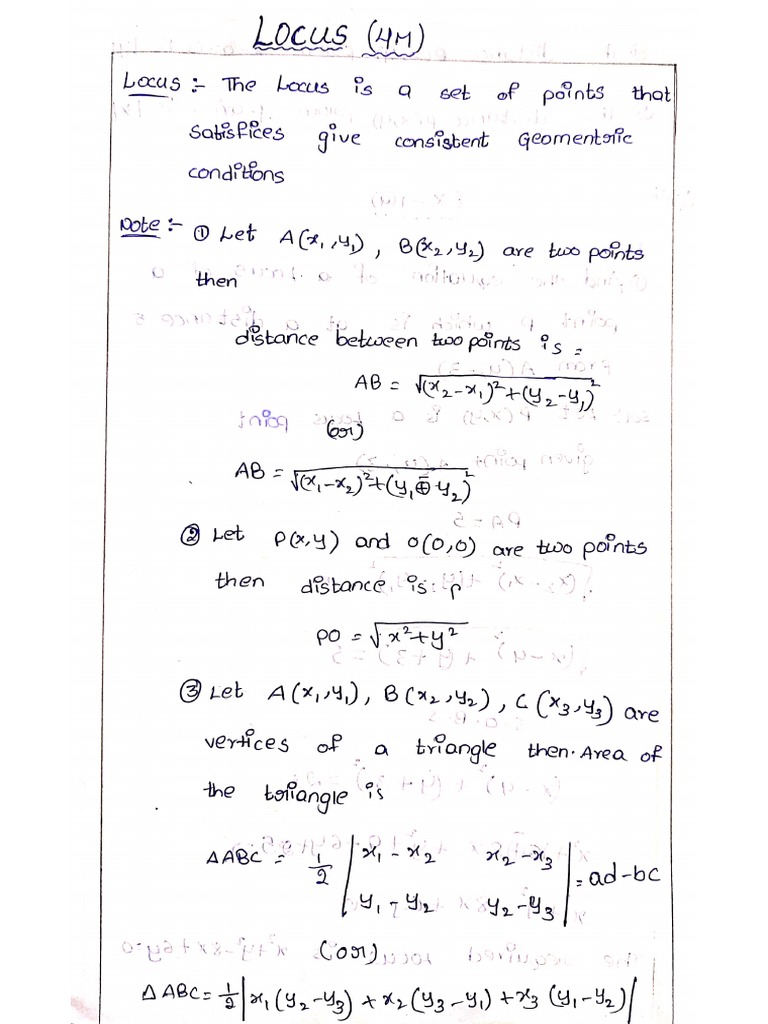 LOCUS (4M)
Locus :- The Locus is a set of points that
satisfices give consistent Geomentric
conditions
Note :- ① Let A(x₁,y₁), B(x₂,y₂) are two points
then
distance between two points is =
AB = √(x₂-x₁)²+(y₂-y₁)²
(or)
AB = √(x₁-x₂)²+(y₁-y₂)²
② Let P(x,y) and O(0,0) are two points
then distance is: P
PO = √x²+y²
③ Let A(x₁,y₁), B(x₂,y₂), C(x₃,y₃) are
vertices of a triangle then. Area of
the triangle is
△ABC = 1/2 |x₁-x₂ x₂-x₃
y₁-y₂ y₂-y₃| = ad-bc
(or)
△ABC = 1/2 |x₁(y₂-y₃) + x₂(y₃-y₁) + x₃(y₁-y₂)|